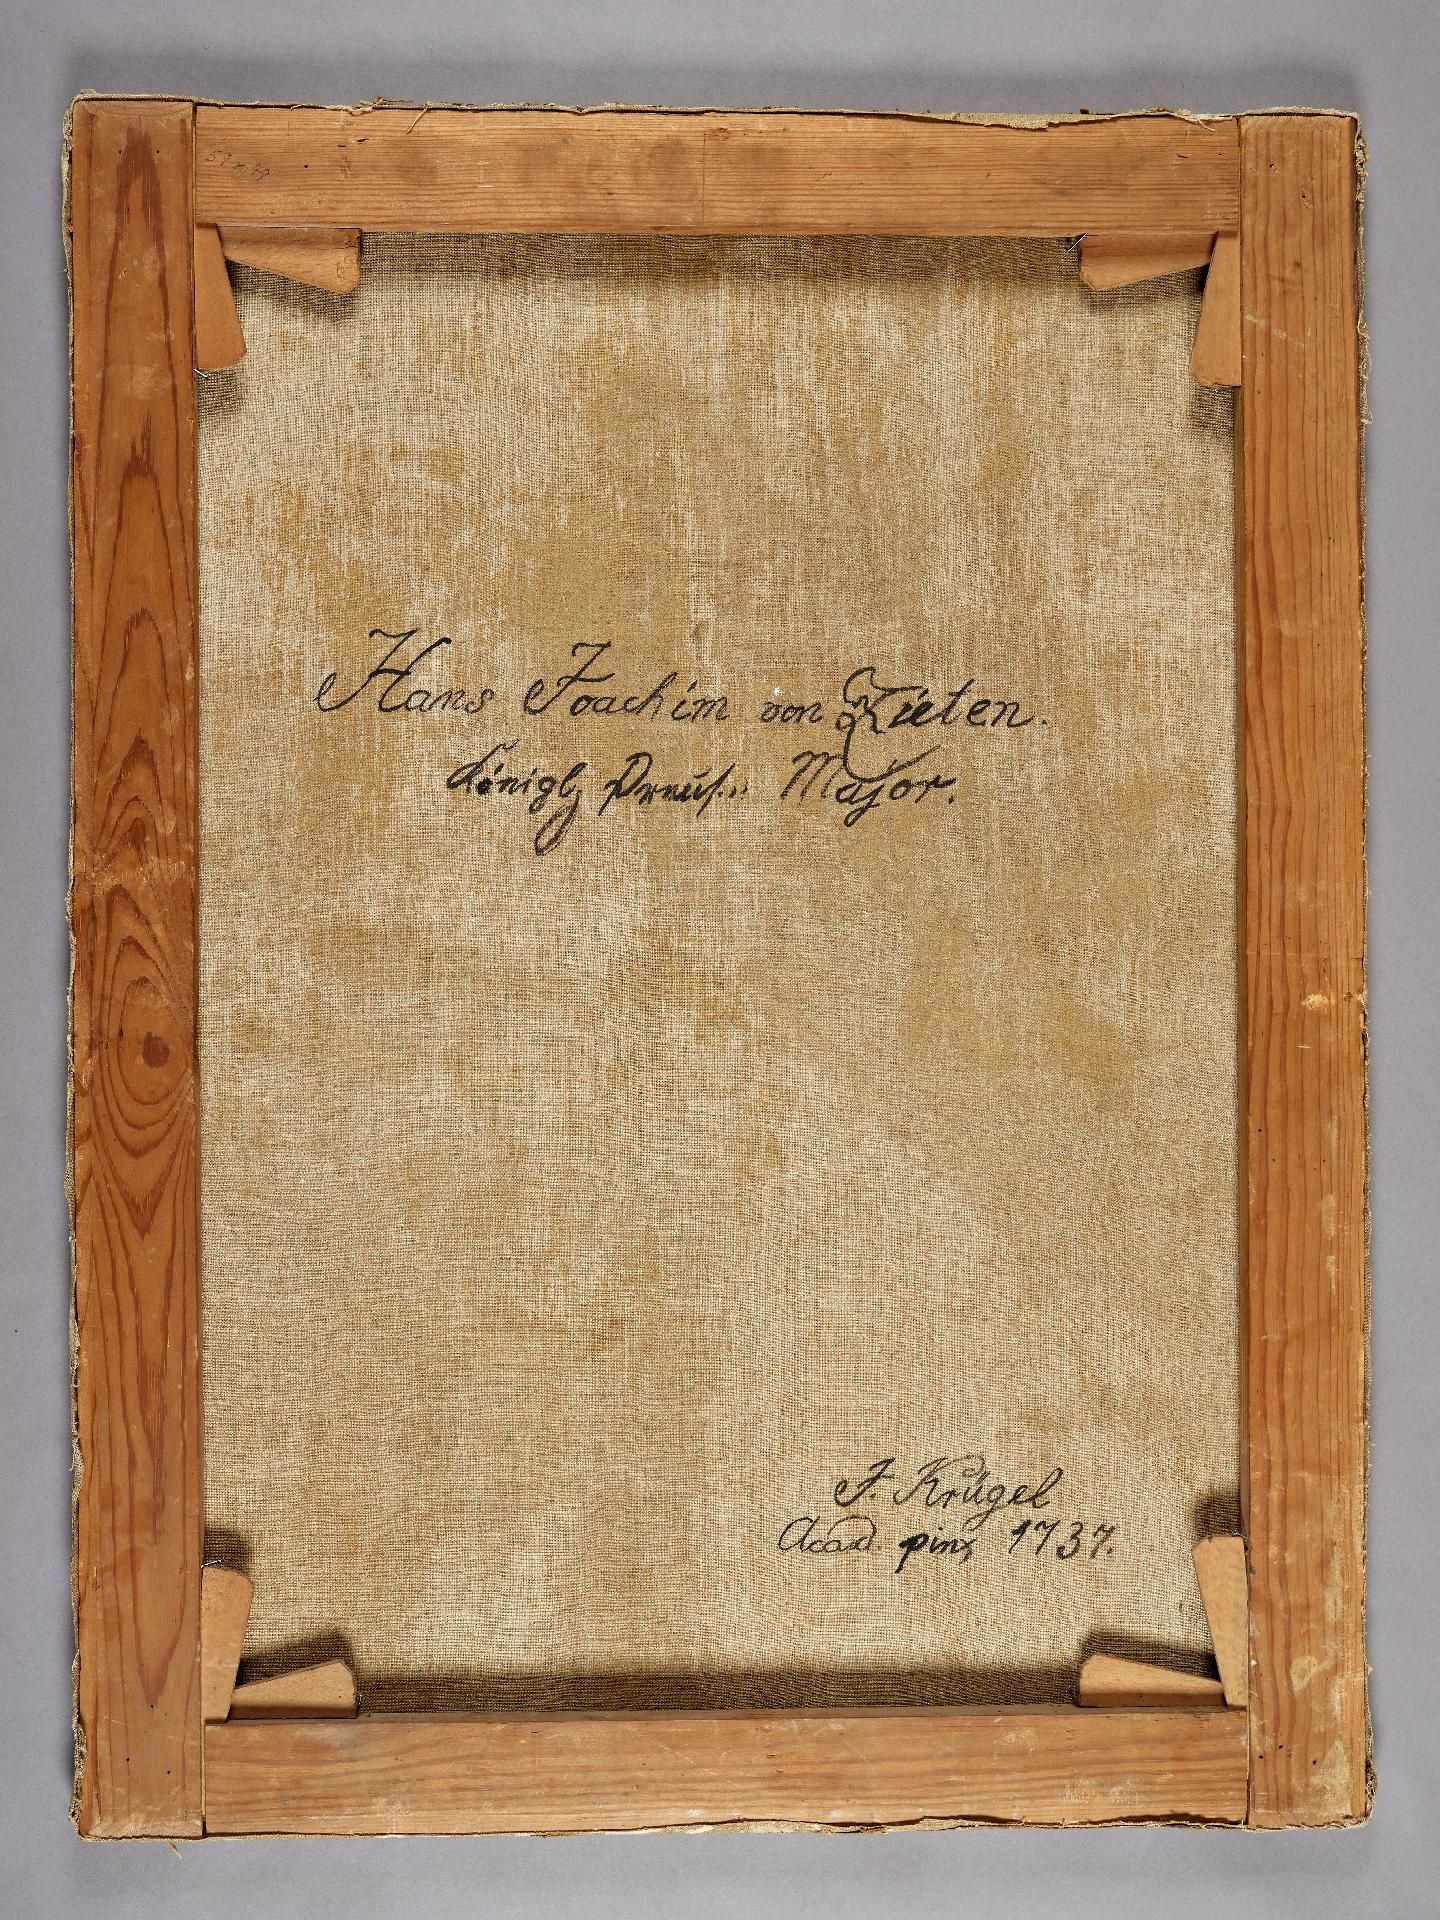 59 x 79
Hans Joachim von Zieten.
Königl. Preuß. Major.
J. Krügel
Acad. pinx 1737.